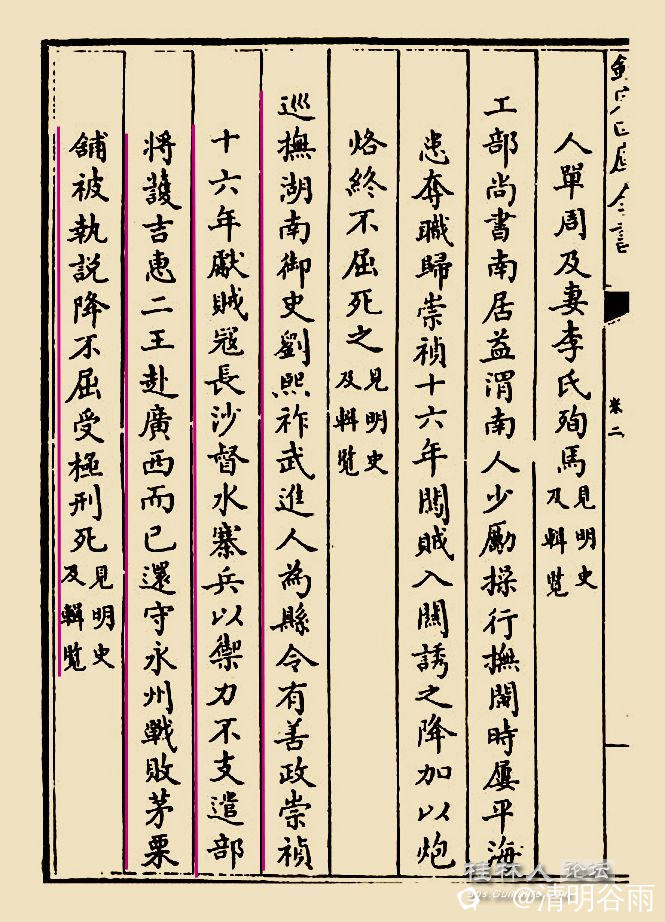 欽定四庫全書
卷二
人單周及妻李氏殉焉見明史及輯覽
工部尚書南居益渭南人少勵操行撫閩時屢平海
患奪職歸崇禎十六年闖賊入關誘之降加以炮
烙終不屈死之見明史及輯覽
巡撫湖南御史劉熙祚武進人為縣令有善政崇禎
十六年獻賊寇長沙督水寨兵以禦力不支遣部
將護吉惠二王赴廣西而已還守永州戰敗茅栗
鋪被執說降不屈受極刑死見明史及輯覽
桂林人论坛
@清明谷雨